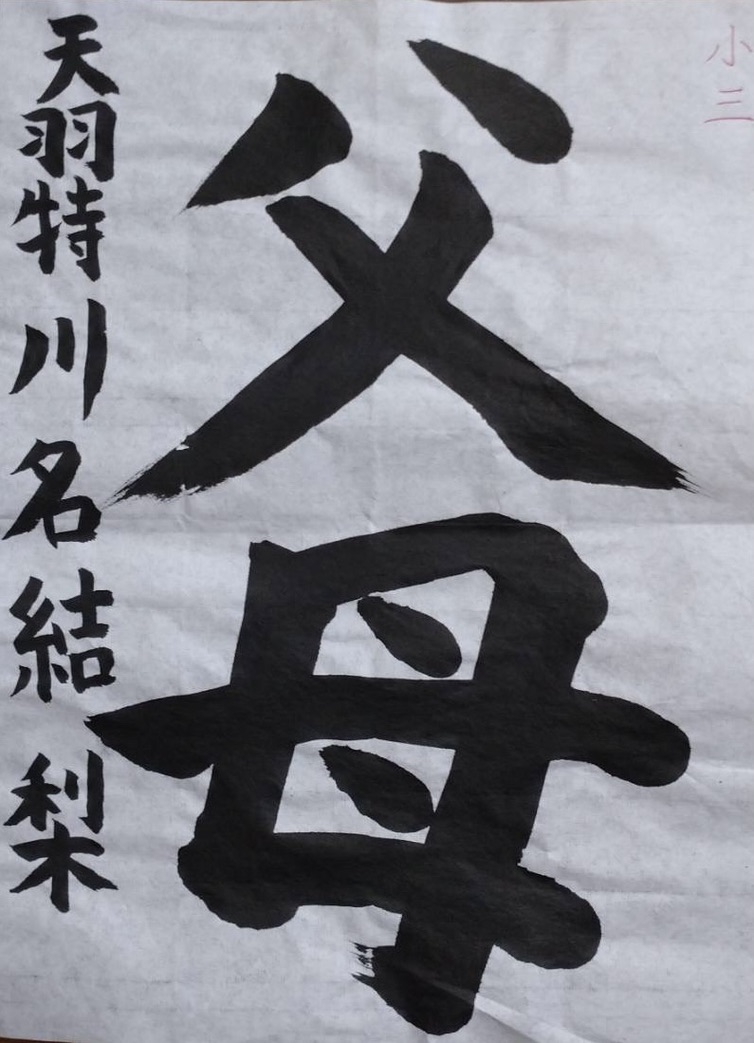 小三
父母
天羽特川名結梨